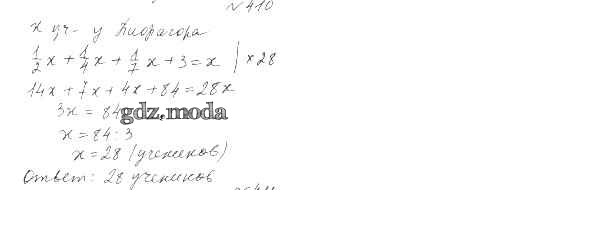 № 410
x уч- у Пифагора
1/2 x + 1/4 x + 1/7 x + 3 = x | × 28
14x + 7x + 4x + 84 = 28x
3x = 84
gdz.moda
x = 84 : 3
x = 28 (учеников)
Ответ: 28 учеников